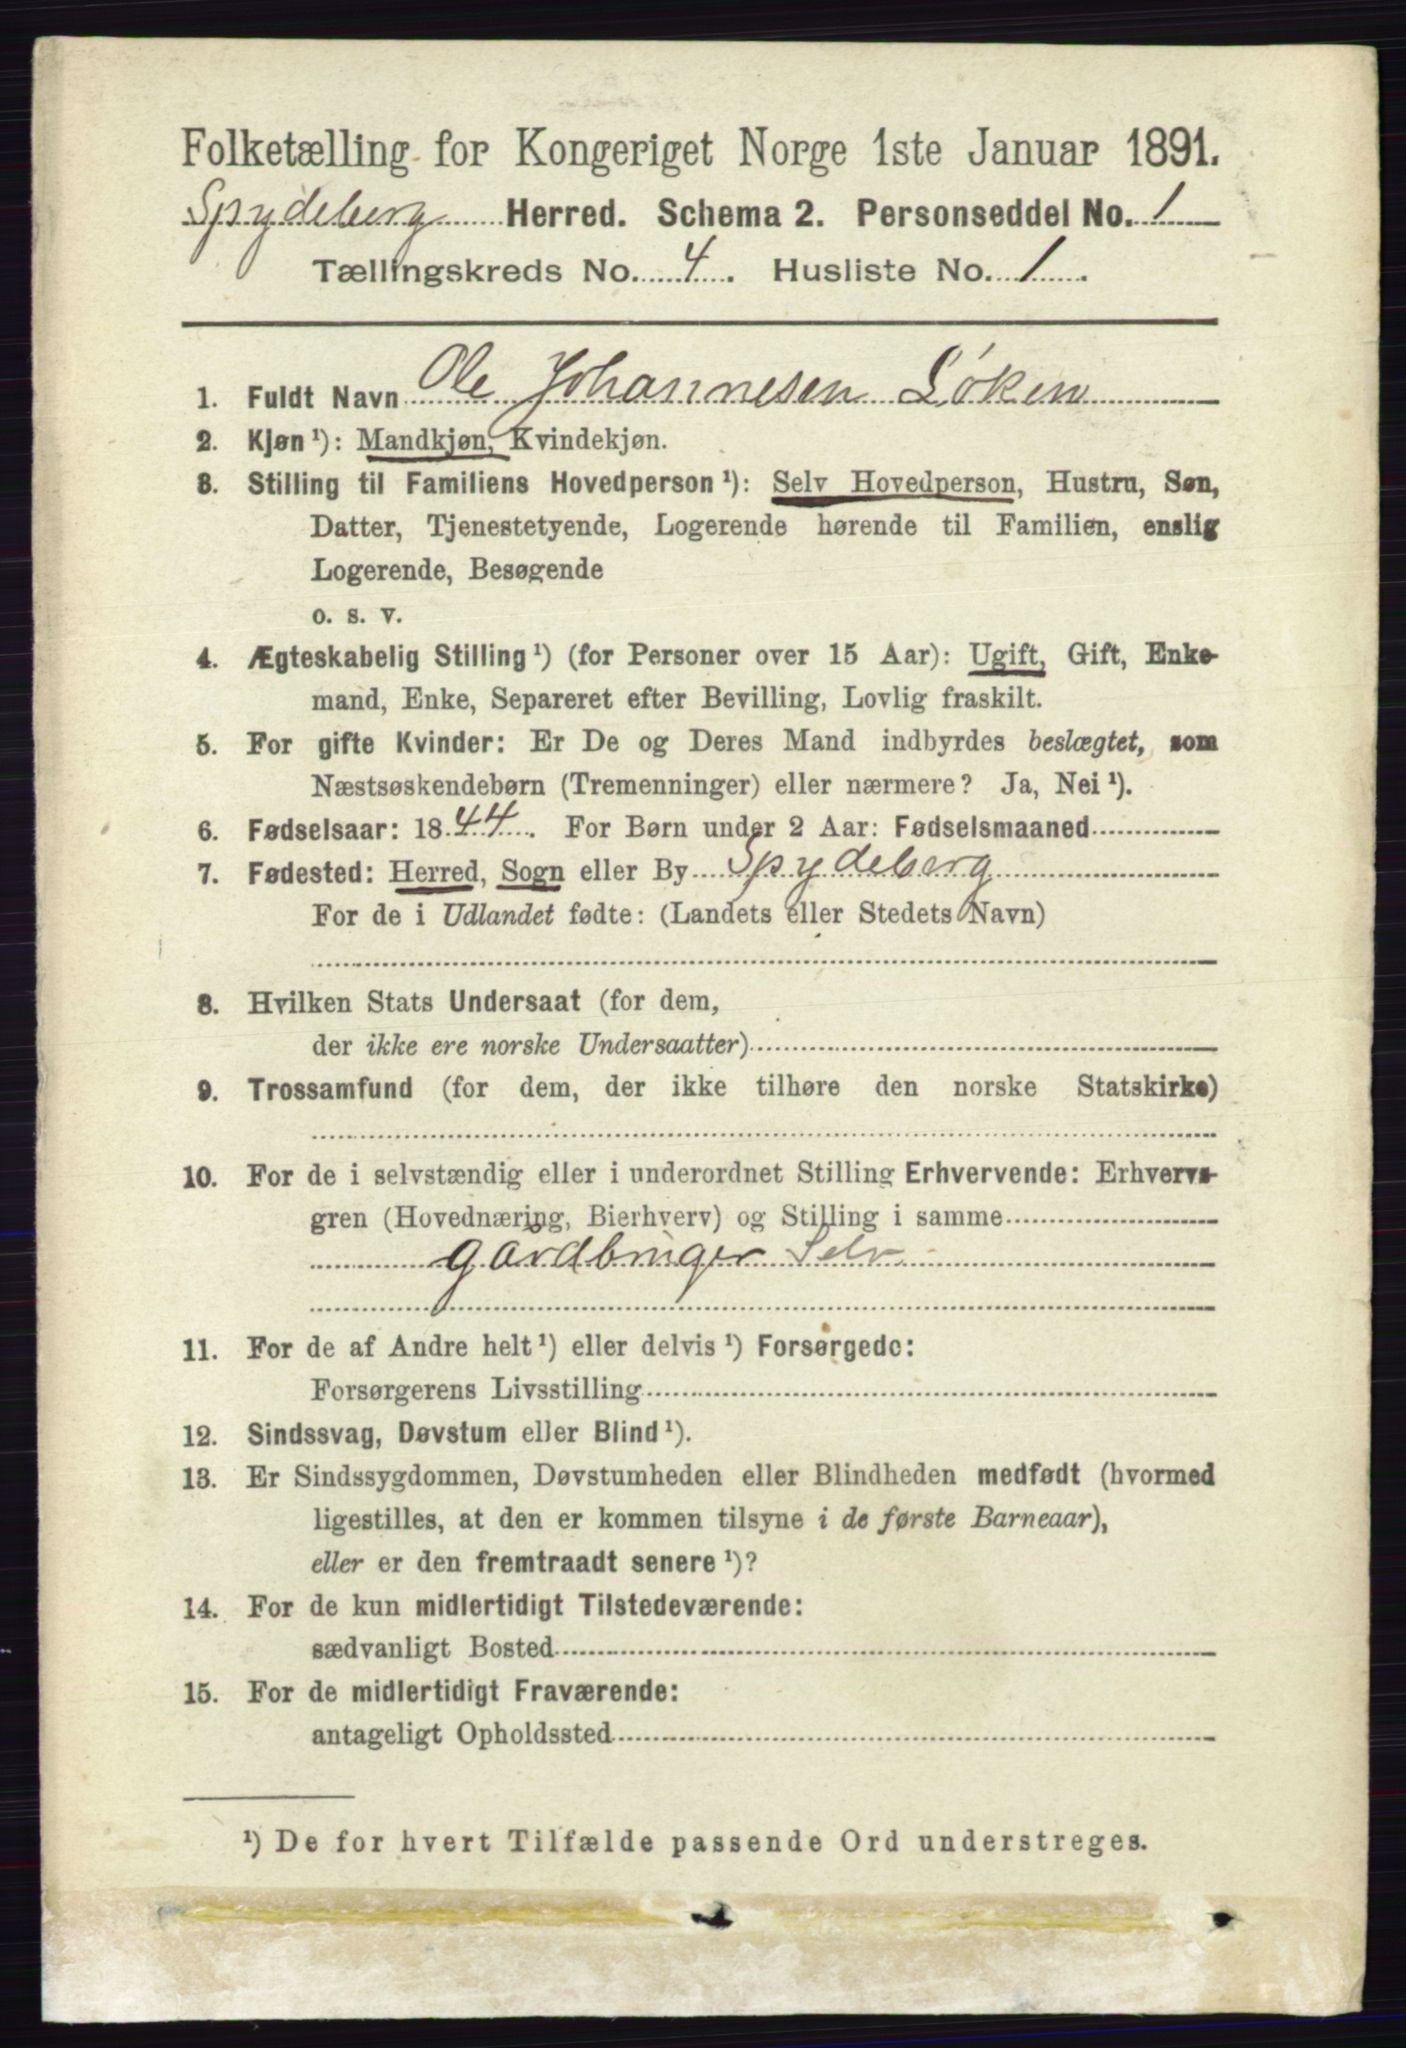 Folketælling for Kongeriget Norge 1ste Januar 1891.
Spydeberg Herred. Schema 2. Personseddel No. 1
Tællingskreds No. 4. Husliste No. 1.
1. Fuldt Navn Ole Johannesen Løken
2. Kjøn ¹): Mandkjøn, Kvindekjøn.
3. Stilling til Familiens Hovedperson ¹): Selv Hovedperson, Hustru, Søn,
Datter, Tjenestetyende, Logerende hørende til Familien, enslig
Logerende, Besøgende
o. s. v.
4. Ægteskabelig Stilling ¹) (for Personer over 15 Aar): Ugift, Gift, Enke-
mand, Enke, Separeret efter Bevilling, Lovlig fraskilt.
5. For gifte Kvinder: Er De og Deres Mand indbyrdes beslægtet, som
Næstsøskendebørn (Tremenninger) eller nærmere? Ja, Nei ¹).
6. Fødselsaar: 1844. For Børn under 2 Aar: Fødselsmaaned
7. Fødested: Herred, Sogn eller By Spydeberg
For de i Udlandet fødte: (Landets eller Stedets Navn)
8. Hvilken Stats Undersaat (for dem,
der ikke ere norske Undersaatter)
9. Trossamfund (for dem, der ikke tilhøre den norske Statskirke)
10. For de i selvstændig eller i underordnet Stilling Erhvervende: Erhvervs-
gren (Hovednæring, Bierhverv) og Stilling i samme
gårdbruger Selv
11. For de af Andre helt ¹) eller delvis ¹) Forsørgede:
Forsørgerens Livsstilling
12. Sindssvag, Døvstum eller Blind ¹).
13. Er Sindssygdommen, Døvstumheden eller Blindheden medfødt (hvormed
ligestilles, at den er kommen tilsyne i de første Barneaar),
eller er den fremtraadt senere ¹)?
14. For de kun midlertidigt Tilstedeværende:
sædvanligt Bosted
15. For de midlertidigt Fraværende:
antageligt Opholdssted
¹) De for hvert Tilfælde passende Ord understreges.